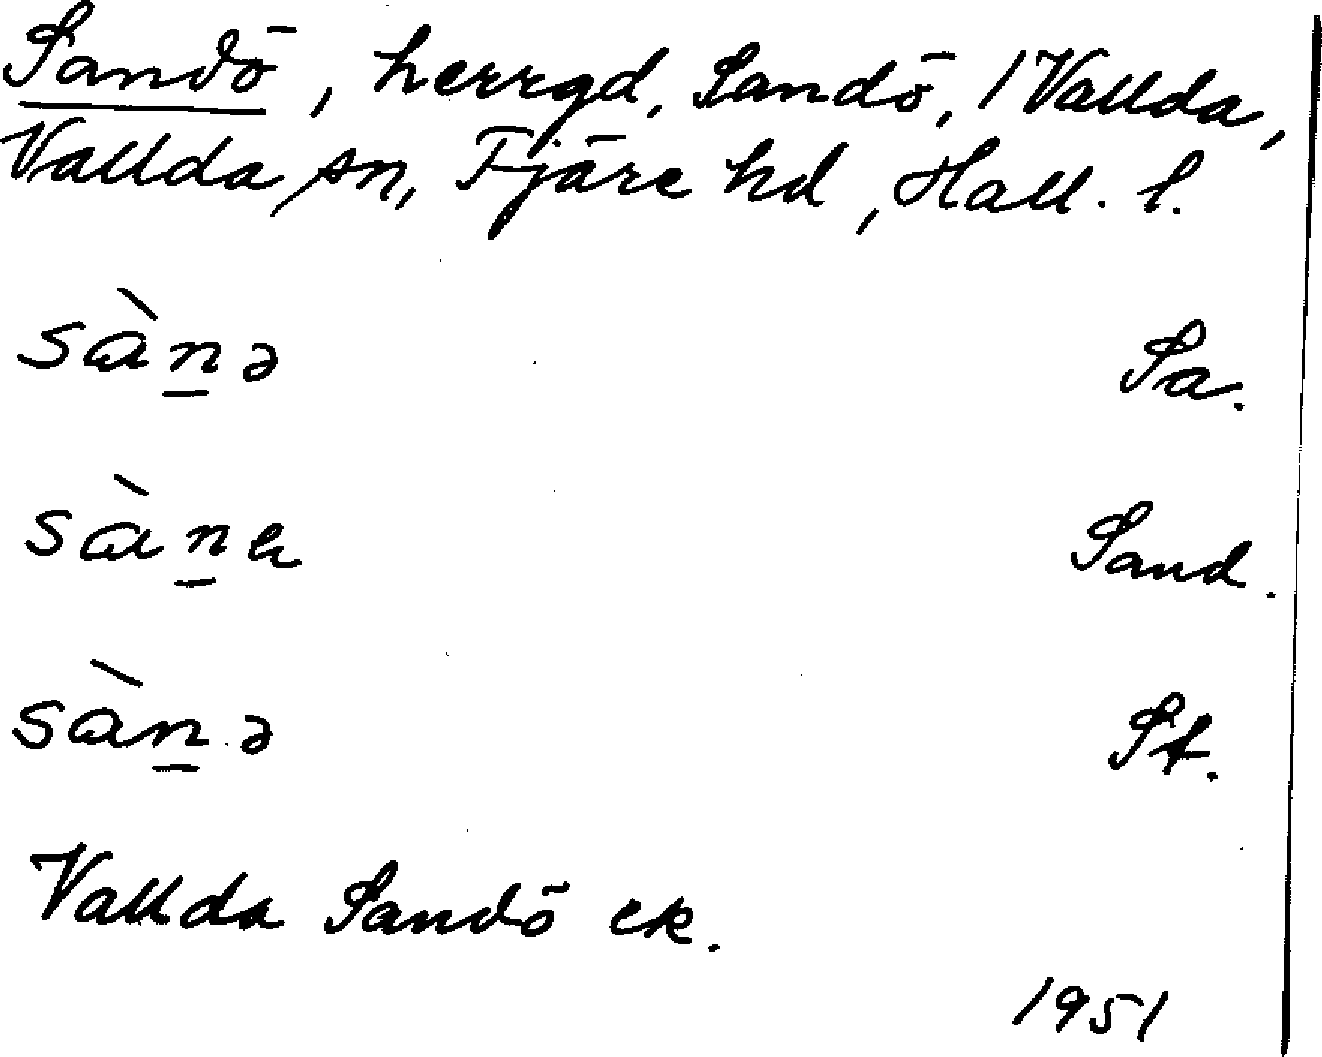 Sandö, herrgd, Sandö, 1 Vallda,
Vallda sn, Fjäre hd, Hall. l.
sàn̲ə Sa.
sàn̲ Sand.
sàn̲ə St.
Vallda Sandö ek.
1951